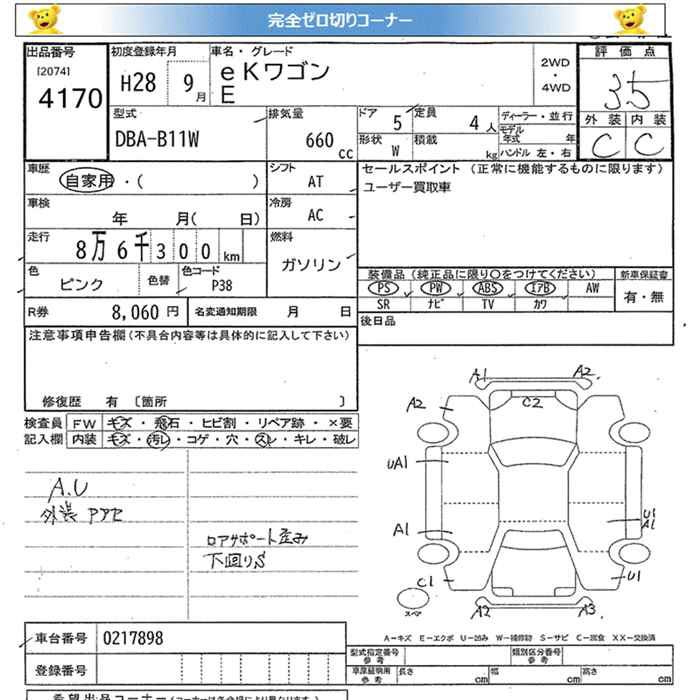 完全ゼロ切りコーナー
出品番号
[2074]
4170
初度登録年月
H28 9月
車名・グレード
eKワゴン
E
2WD
・
4WD
評価点
3.5
外装 内装
C C
型式
DBA-B11W
排気量
660 cc
ドア 5
定員 4人
形状 W
積載 kg
ディーラー・並行
モデル年式 年
ハンドル 左・右
車歴
自家用・( )
シフト AT
車検
年 月( 日)
冷房 AC
走行
8万6千300km
燃料
ガソリン
色 ピンク
色替
色コード P38
R券 8,060円
名変通知期限 月 日
セールスポイント (正常に機能するものに限ります)
ユーザー買取車
装備品(純正品に限り○をつけてください)
PS PW ABS エアB AW
SR ナビ TV カワ
新車保証書
有・無
後日品
注意事項申告欄(不具合内容等は具体的に記入して下さい)
修復歴 有 〔箇所 〕
検査員 FW キズ・飛石・ヒビ割・リペア跡・×要
記入欄 内装 キズ・汚レ・コゲ・穴・スレ・キレ・破レ
A.U
外装
ロアサポート歪み
下回りS
A1 A2
A2 C2
UA1
A1 U1
A1
C1 U1
スペア
A2 A3
A-キズ E-エクボ U-凹み W-補修跡 S-サビ C-腐食 XX-交換済
車台番号 0217898
登録番号
型式指定番号
参考
類別区分番号
参考
車庫証明用
参考
長さ cm 幅 cm 高さ cm
希望出品コーナー